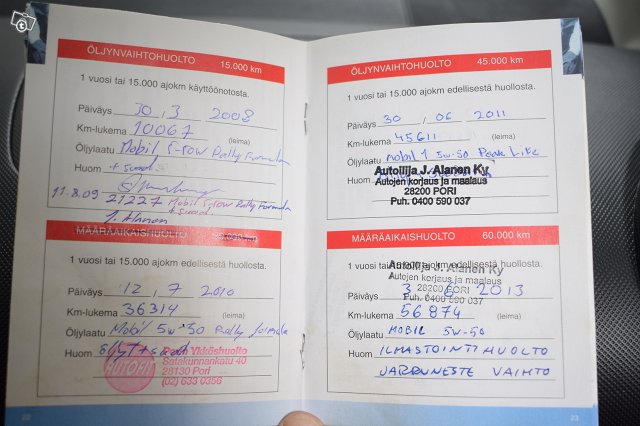 ÖLJYNVAIHTOHUOLTO 15.000 km
1 vuosi tai 15.000 ajokm käyttöönotosta.
Päiväys 30.3 2008
Km-lukema 10067 (leima)
Öljylaatu Mobil S-row Rally Formula
Huom + suod.
11.8.09 21227 Mobil S-row Rally Formula
+ suod.
J. Alanen
MÄÄRÄAIKAISHUOLTO
1 vuosi tai 15.000 ajokm edellisestä huollosta.
Päiväys 12, 7 2010
Km-lukema 36314 (leima)
Öljylaatu Mobil 5w-50 Rally formula
Huom
AUTOFIT
Ykköshuolto
Satakunnankatu 40
28130 Pori
(02) 633 0356
22
ÖLJYNVAIHTOHUOLTO 45.000 km
1 vuosi tai 15.000 ajokm edellisestä huollosta.
Päiväys 30. 06 2011
Km-lukema 45611 (leima)
Öljylaatu Mobil 1 5w-50 Peak Life
Huom
Autoilija J. Alanen Ky
Autojen korjaus ja maalaus
28200 PORI
Puh. 0400 590 037
MÄÄRÄAIKAISHUOLTO 60.000 km
1 vuosi tai 15.000 ajokm edellisestä huollosta.
Autoilija J. Alanen Ky
Autojen korjaus ja maalaus
28200 PORI
Puh. 0400 590 037
Päiväys 3 6 2013
Km-lukema 56874 (leima)
Öljylaatu MOBIL 5W-50
Huom ILMASTOINTIHUOLTO
JARRUNESTE VAIHTO
23